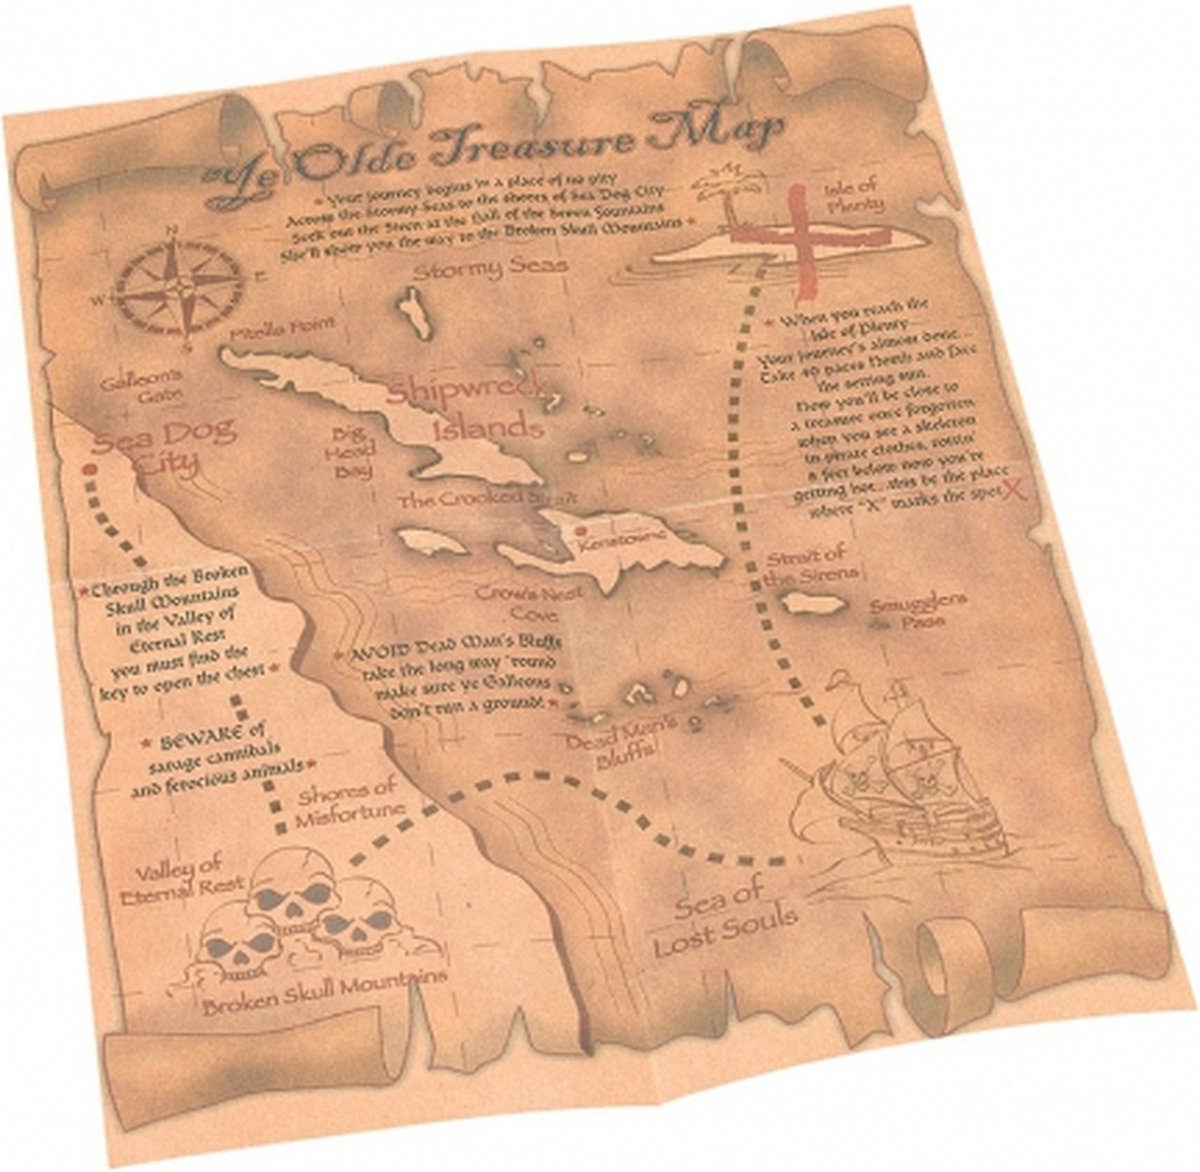 Ye Olde Treasure Map
* Your journey begins in a place of no pity
Across the Stormy Seas to the shores of Sea Dog City
Seek out the Siren at the Hall of the Seven Fountains
She'll show you the way to the Broken Skull Mountains *
Isle of
Plenty
N
E
W
S
Stormy Seas
Pinella Point
* When you reach the
Isle of Plenty...
Your journey's almost done...
Take 40 paces North and face
the setting sun.
Now you'll be close to
a treasure once forgotten
when you see a skeleton
in pirate clothes, rottin'
6 feet below now you're
getting hot...this be the place
where "X" marks the spot X
Galleon's
Gate
Shipwreck
Islands
Sea Dog
City
Big
Head
Bay
The Crooked Strait
Kenstowne
Strait of
the Sirens
Crow's Nest
Cove
Smugglers
Pass
* Through the Broken
Skull Mountains
in the Valley of
Eternal Rest
you must find the
key to open the chest *
* AVOID Dead Man's Bluffs
take the long way 'round
make sure ye Galleons
don't run a ground! *
Dead Man's
Bluffs
* BEWARE of
savage cannibals
and ferocious animals *
Shores of
Misfortune
Valley of
Eternal Rest
Sea of
Lost Souls
Broken Skull Mountains